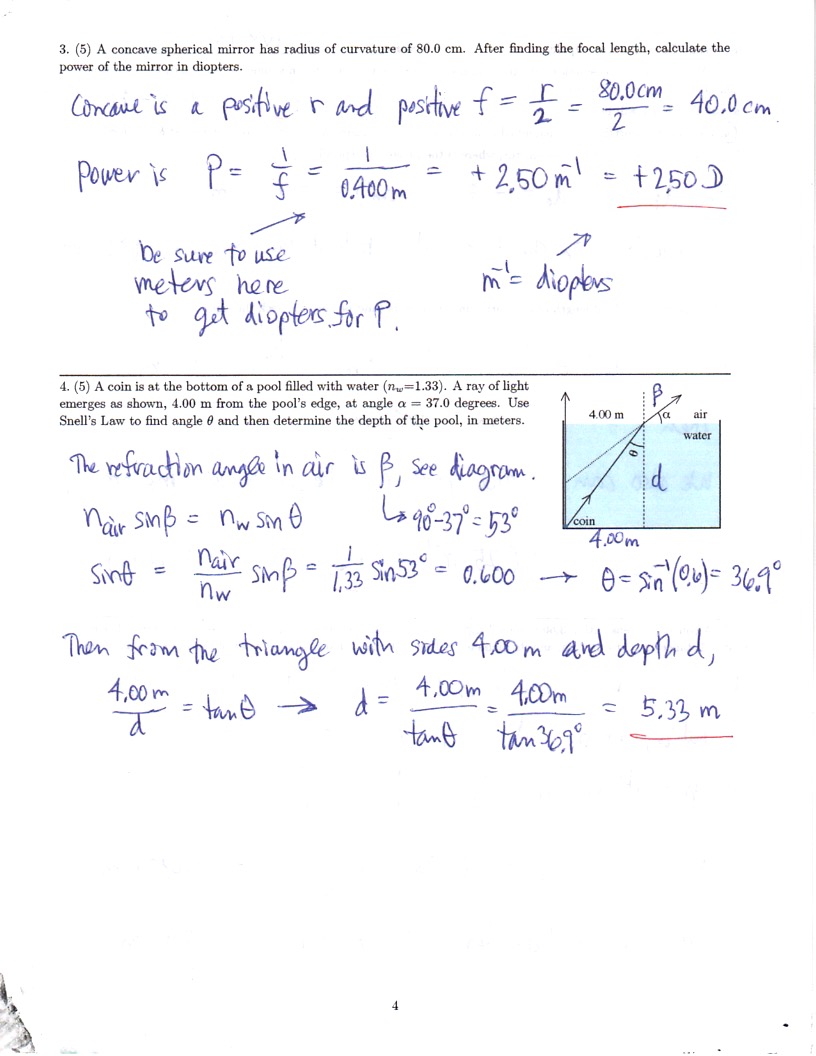 3. (5) A concave spherical mirror has radius of curvature of 80.0 cm. After finding the focal length, calculate the
power of the mirror in diopters.
Concave is a positive r and positive f = r/2 = 80.0cm/2 = 40.0 cm
Power is P = 1/f = 1/0.400m = +2.50 m⁻¹ = +2.50 D
be sure to use
meters here
to get diopters for P.
m⁻¹ = diopters
4. (5) A coin is at the bottom of a pool filled with water (n_w=1.33). A ray of light
emerges as shown, 4.00 m from the pool's edge, at angle α = 37.0 degrees. Use
Snell's Law to find angle θ and then determine the depth of the pool, in meters.
β
4.00 m α air
water
θ
d
coin
4.00m
The refraction angle in air is β, see diagram.
n_air sinβ = n_w sinθ ↳ 90°-37° = 53°
sinθ = n_air/n_w sinβ = 1/1.33 sin53° = 0.600 → θ = sin⁻¹(0.6) = 36.9°
Then from the triangle with sides 4.00 m and depth d,
4.00 m/d = tanθ → d = 4.00m/tanθ = 4.00m/tan36.9° = 5.33 m
4